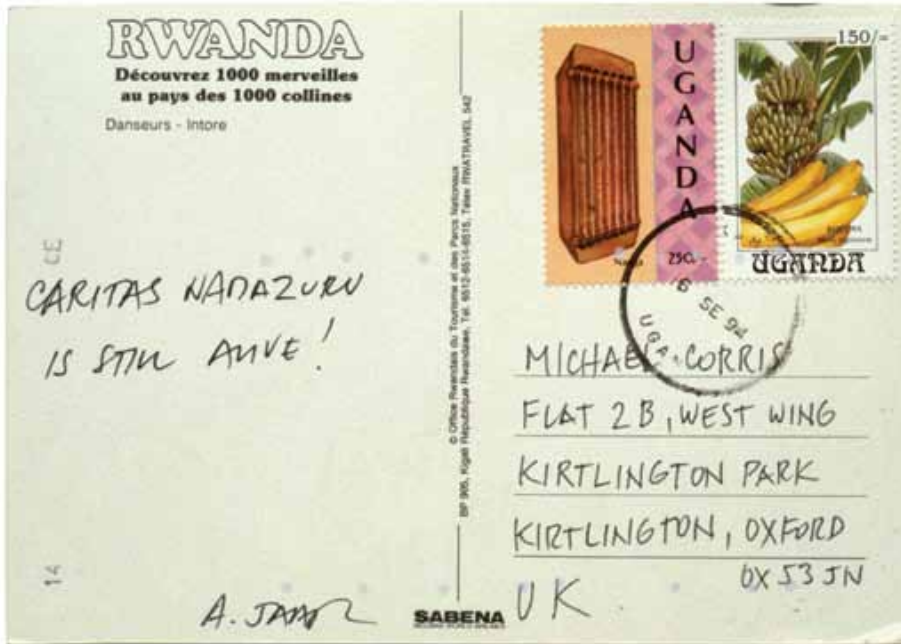 RWANDA
Découvrez 1000 merveilles
au pays des 1000 collines
Danseurs - Intore
CE
CARITAS NAMAZURU
IS STILL ALIVE!
14
A. JAAR
© Office Rwandais du Tourisme et des Parcs Nationaux
BP 905, Kigali République Rwandaise, Tél. 6512-6514-6515, Télex RWATRAVEL 542
SABENA
UGANDA
250/-
150/=
BANANA
UGANDA
6 SE 94
UGAN
MICHAEL CORRIS
FLAT 2B, WEST WING
KIRTLINGTON PARK
KIRTLINGTON, OXFORD
OX5 3JN
UK